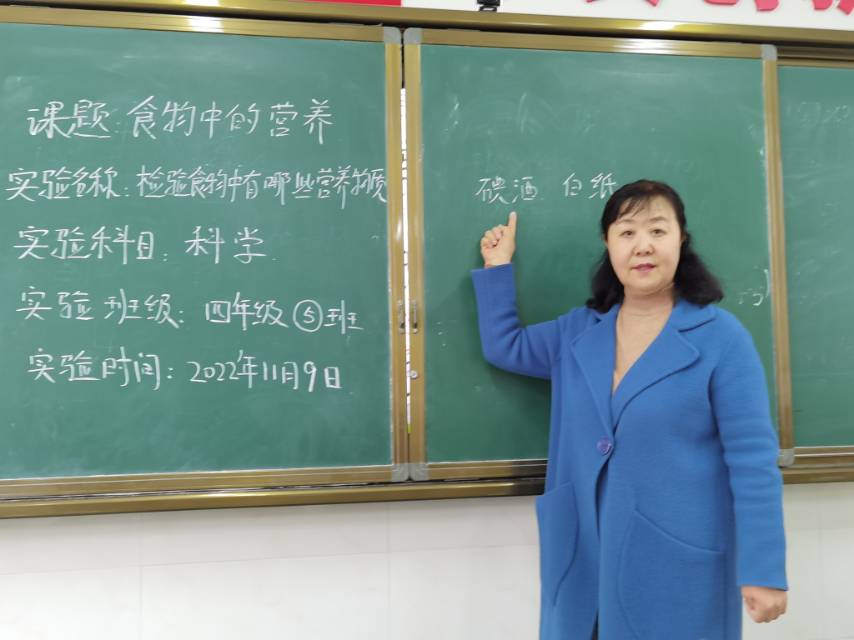 课题:食物中的营养
实验名称:检验食物中有哪些营养物质
实验科目:科学
实验班级:四年级⑤班
实验时间:2022年11月9日
碘酒 白纸